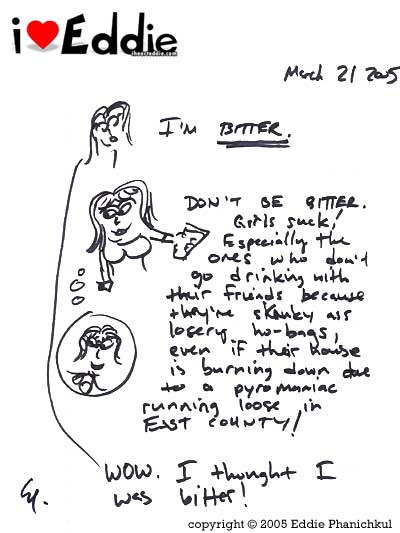 i♥Eddie
ihearteddie.com
March 21 2005
I'm BITTER.
DON'T BE BITTER.
Girls suck!
Especially the
ones who don't
go drinking with
their friends because
they're skanky ass
losery ho-bags,
even if their house
is burning down due
to a pyromaniac
running loose in
EAST COUNTY!
WOW. I thought I
was bitter!
copyright © 2005 Eddie Phanichkul